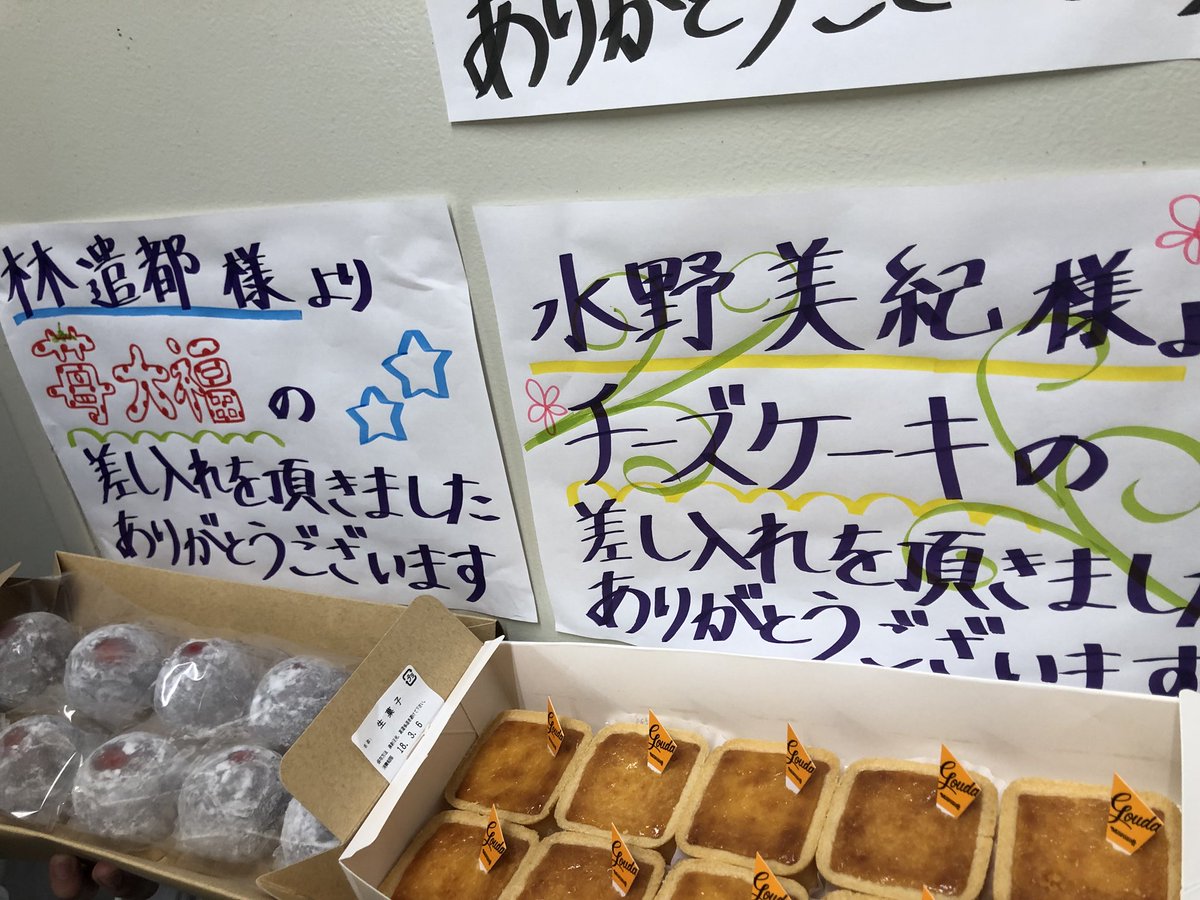 ありがとうござい
林遣都様より
苺大福の
差し入れを頂きました
ありがとうございます
水野美紀様よ
チーズケーキの
差し入れを頂きまし
ありがとうございます
生菓子
18.3.6
Gouda
Gouda
Gouda
Gouda
Gouda
Gouda
Gouda
Gouda